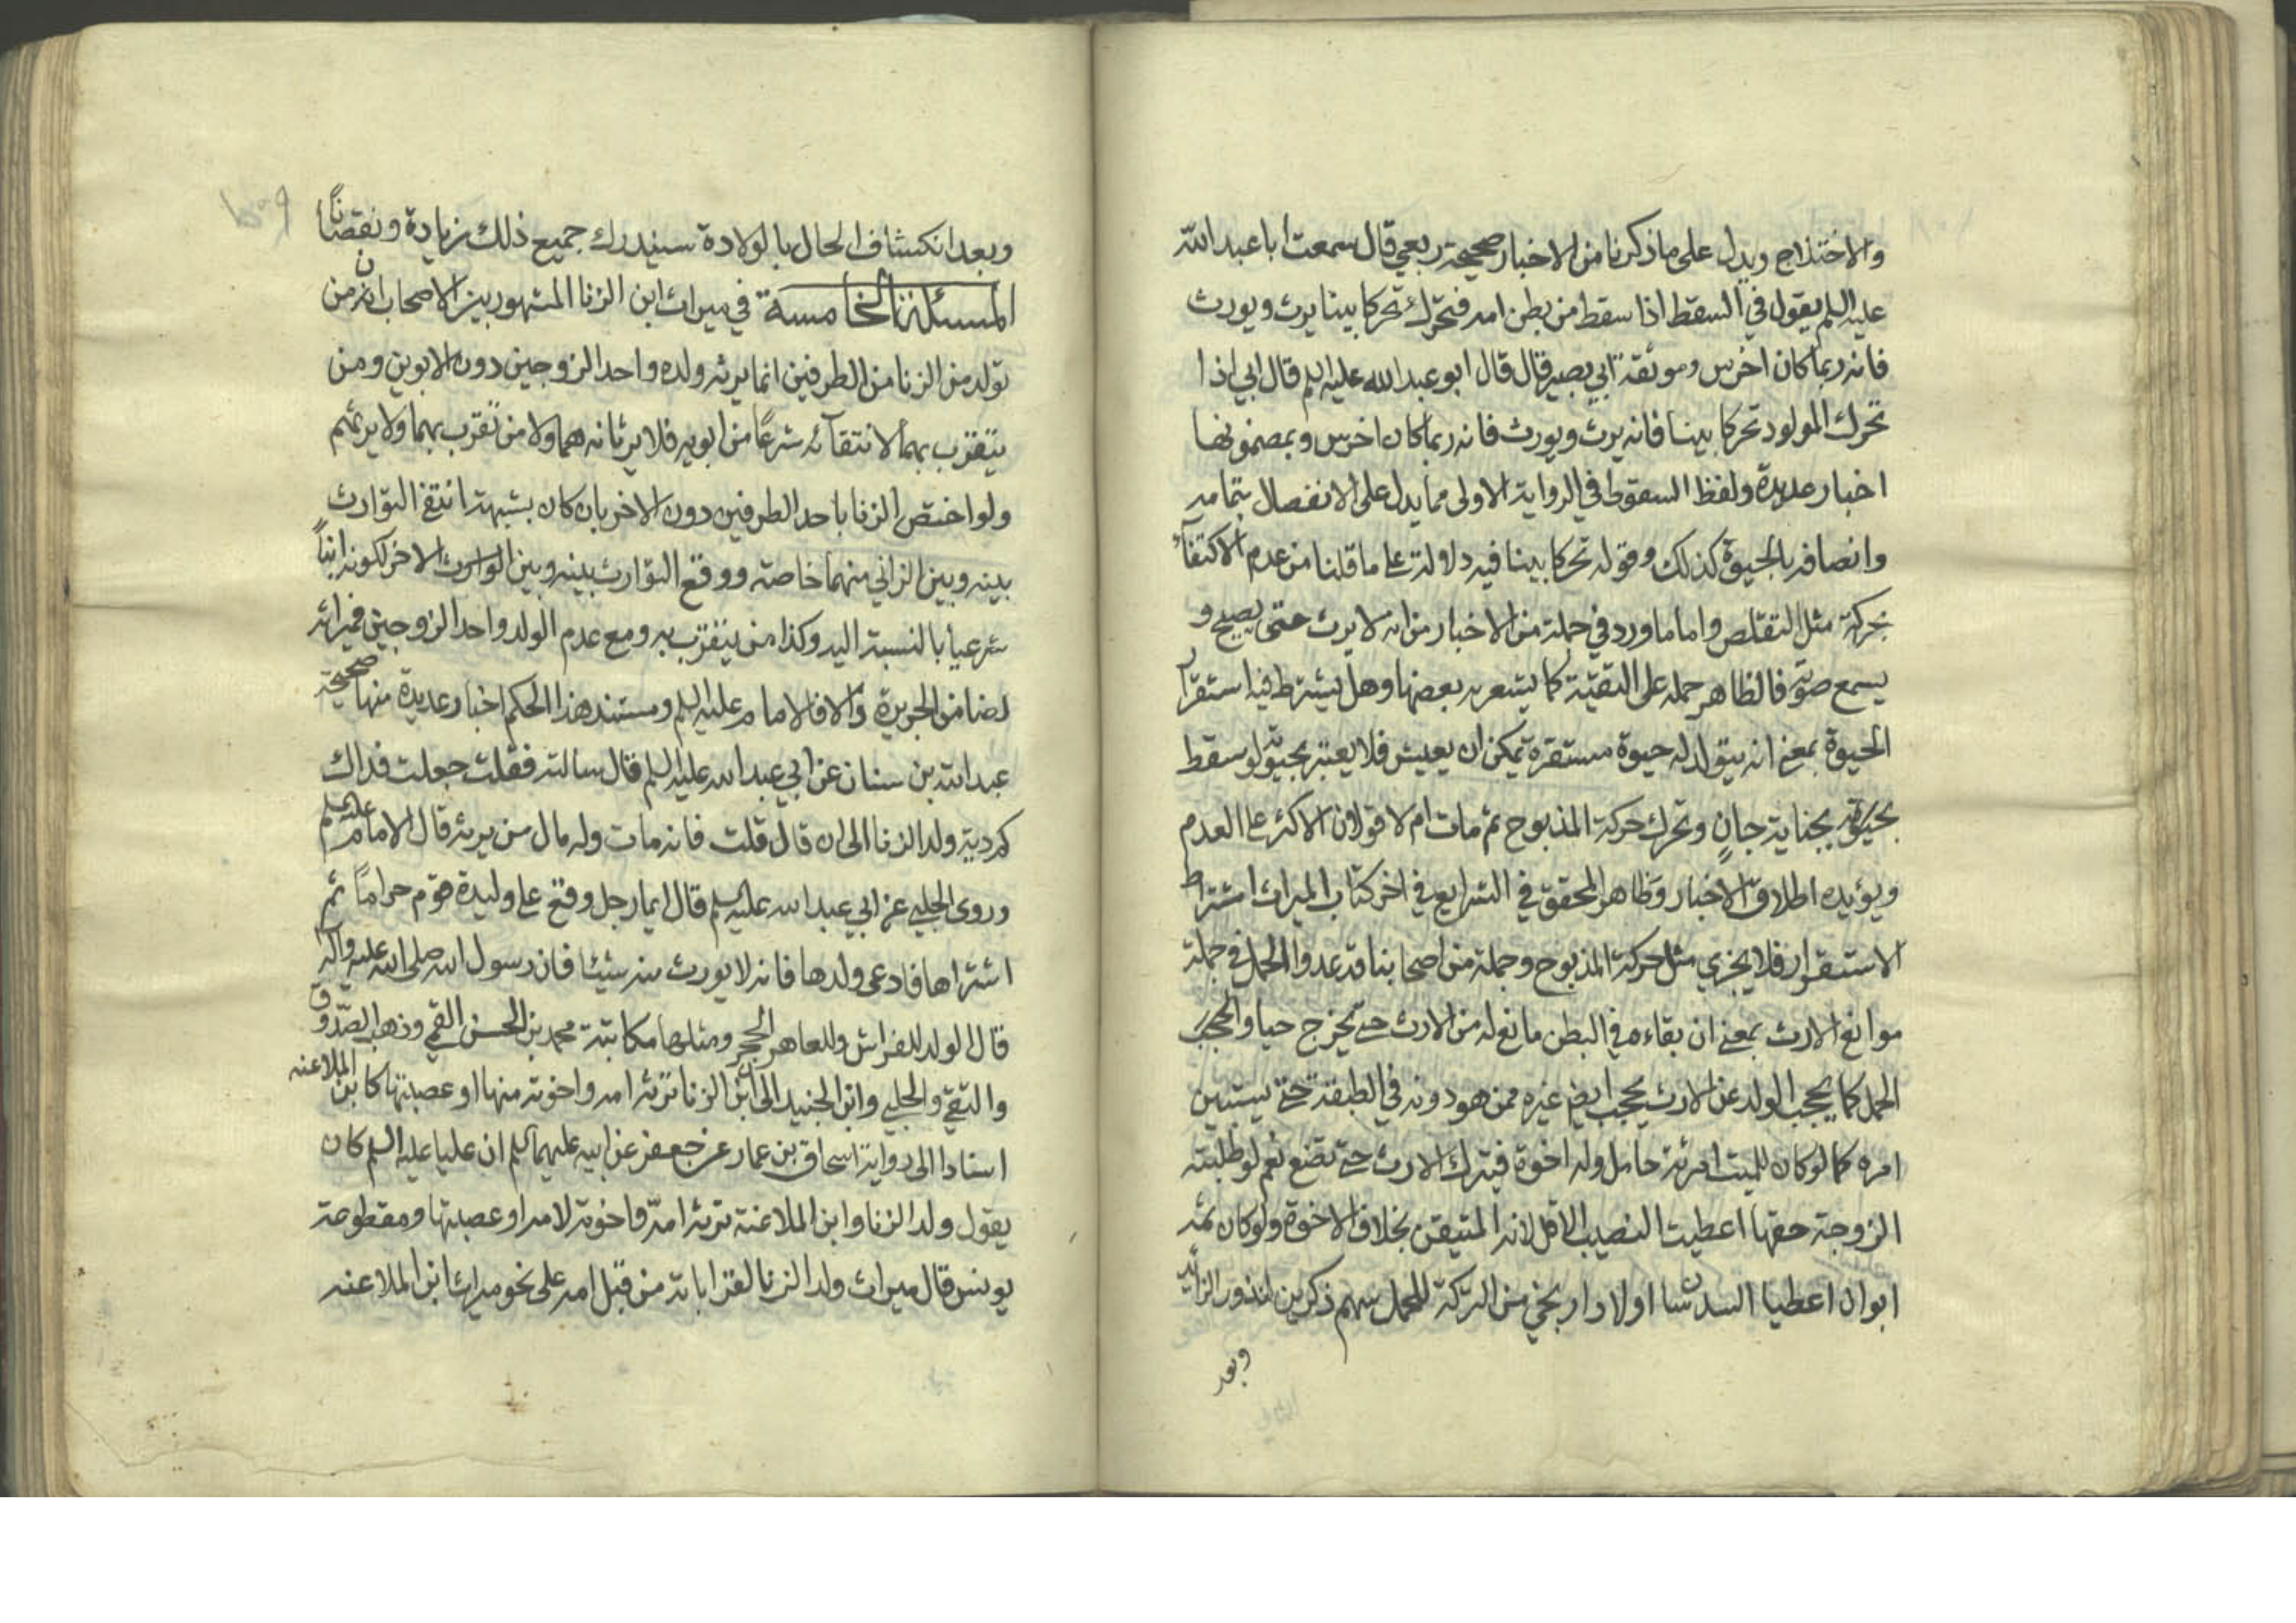 والاختلاج ويدل على ما ذكرنا من الاخبار صحيحة ربعي قال سمعت ابا عبد الله
عليه السلم يقول في السقط اذا سقط من بطن امه فتحرك تحركا بينا يرث ويورث
فانه ربما كان اخرس وموثقة ابي بصير قال قال ابو عبد الله عليه السلم قال ابي اذا
تحرك المولود تحركا بينا فانه يرث ويورث فانه ربما كان اخرس وبمضمونها
اخبار عديدة ولفظ السقوط في الرواية الاولى مما يدل على الانفصال بتمامه
واتصافه بالحيوة كذلك وقوله تحركا بينا فيه دلالة على ما قلنا من عدم الاكتفآء
بحركة مثل التقلص واما ما ورد في جملة من الاخبار من انه لا يرث حتى يصيح و
يسمع صوته فالظاهر حمله على التقيّة كما يشعر به بعضها وهل يشترط فيه استقرار
الحيوة بمعنى انه يتولد له حيوة مستقرة يمكن ان يعيش فلا يعتبر بحيوته لو سقط
بحيوته بجناية جانٍ وتحرك حركة المذبوح ثم مات ام لا قولان الاكثر على العدم
ويؤيده اطلاق الاخبار وظاهر المحقق في الشرايع في اخر كتاب الميراث اشتراط
الاستقرار فلا يجزي مثل حركة المذبوح وجملة من اصحابنا قد عدوا الحمل في جملة
موانع الارث بمعنى ان بقاءه في البطن مانع له من الارث حتى يخرج حيا والحجب
الحمل كما يحجب الولد عن الارث يحجب ايضا غيره ممن هو دونه في الطبقة حتى يستبين
امره كما لو كان للميت امرئة حامل وله اخوة فيترك الارث حتى تضع نعم لو طلبت
الزوجة حقها اعطيت النصيب الاقل لانه المتيقن بخلاف الاخوة ولو كان ثمة
ابوان اعطيا السدسان او اولاد ارجئ من التركة للحمل سهم ذكرين لندور الزائد
وبعد
وبعد انكشاف الحال بالولادة سيتدرك جميع ذلك زيادة ونقصانًا
المسئلة الخامسة في ميراث ابن الزنا المشهور بين الاصحاب ان من
تولد من الزنا من الطرفين انما يرثه ولده واحد الزوجين دون الابوين ومن
يتقرب بهما لانتفآئه شرعًا من ابويه فلا يرثانه هما ولا من تقرب بهما ولا يرثهم
ولو اختص الزنا باحد الطرفين دون الاخر بان كان بشبهة انتفى التوارث
بينه وبين الزاني منهما خاصة ووقع التوارث بينه وبين الوارث الاخر لكونه ابنًا
شرعيا بالنسبة اليه وكذا من يتقرب به ومع عدم الولد واحد الزوجين فميراثه
لضامن الجريرة والا فالامام عليه السلم ومستند هذا الحكم اخبار عديدة منها صحيحة
عبد الله بن سنان عن ابي عبد الله عليه السلم قال سالته فقلت جعلت فداك
كم دية ولد الزنا الى ان قال قلت فانه مات وله مال من يرثه قال الامام عليه السلم
وروى الحلبي عن ابي عبد الله عليه السلم قال ايما رجل وقع على وليدة قوم حرامًا ثم
اشتراها فادعى ولدها فانه لا يورث منه شيئا فان رسول الله صلى الله عليه وآله
قال الولد للفراش وللعاهر الحجر ومثلها مكاتبة محمد بن الحسن القمي وذهب الصدوق
والتقي والحلبي وابن الجنيد الى ان ابن الزنا ترثه امه واخوته منها او عصبتها كابن الملاعنه
استنادا الى رواية اسحاق بن عمار عن جعفر عن ابيه عليهما السلم ان عليا عليه السلم كان
يقول ولد الزنا وابن الملاعنة ترثه امّه واخوته لامه او عصبتها ومقطوعة
يونس قال ميراث ولد الزنا لقراباته من قبل امه على نحو ميراث ابن الملاعنه